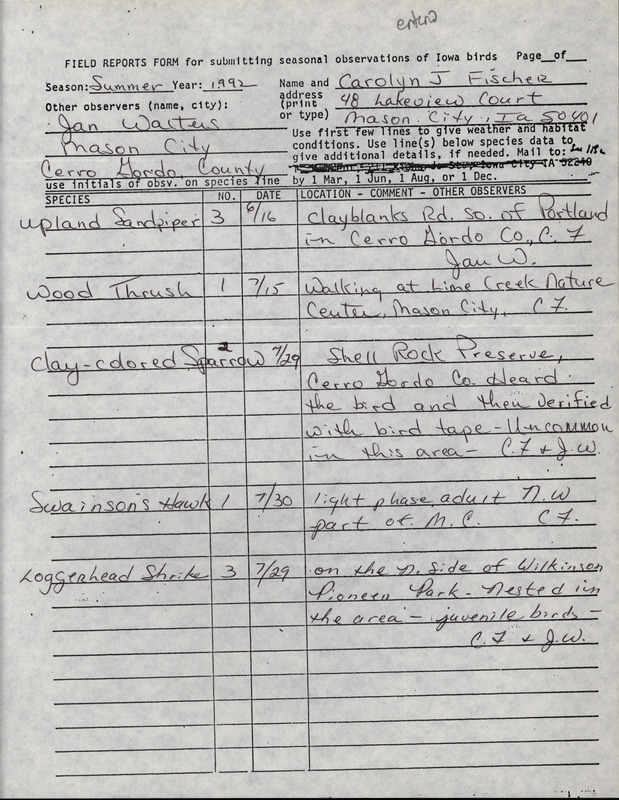 enterd
FIELD REPORTS FORM for submitting seasonal observations of Iowa birds Page__of__
Season: Summer Year: 1992 Name and Carolyn J Fischer
address 48 Lakeview Court
Other observers (name, city): (print
or type) Mason City, Ia 50401
Jan Walters
Mason City
Cerro Gordo County
Use first few lines to give weather and habitat
conditions. Use line(s) below species data to
give additional details, if needed. Mail to:
Iowa City IA 52240
use initials of obsv. on species line by 1 Mar, 1 Jun, 1 Aug, or 1 Dec.
SPECIES NO. DATE LOCATION - COMMENT - OTHER OBSERVERS
Upland Sandpiper 3 6/16 Clayblanks Rd. so. of Portland
in Cerro Gordo Co., C. F
Jan W.
Wood Thrush 1 7/15 Walking at Lime Creek Nature
Center, Mason City, C F.
Clay-colored Sparrow 2 7/29 Shell Rock Preserve,
Cerro Gordo Co. Heard
the bird and then verified
with bird tape - Uncommon
in this area - C.F & J.W.
Swainson's Hawk 1 7/30 light phase, adult N.W
part of M.C. C F.
Loggerhead Shrike 3 7/29 on the N. side of Wilkinson
Pioneer Park - Nested in
the area - juvenile birds -
C.F & J.W.